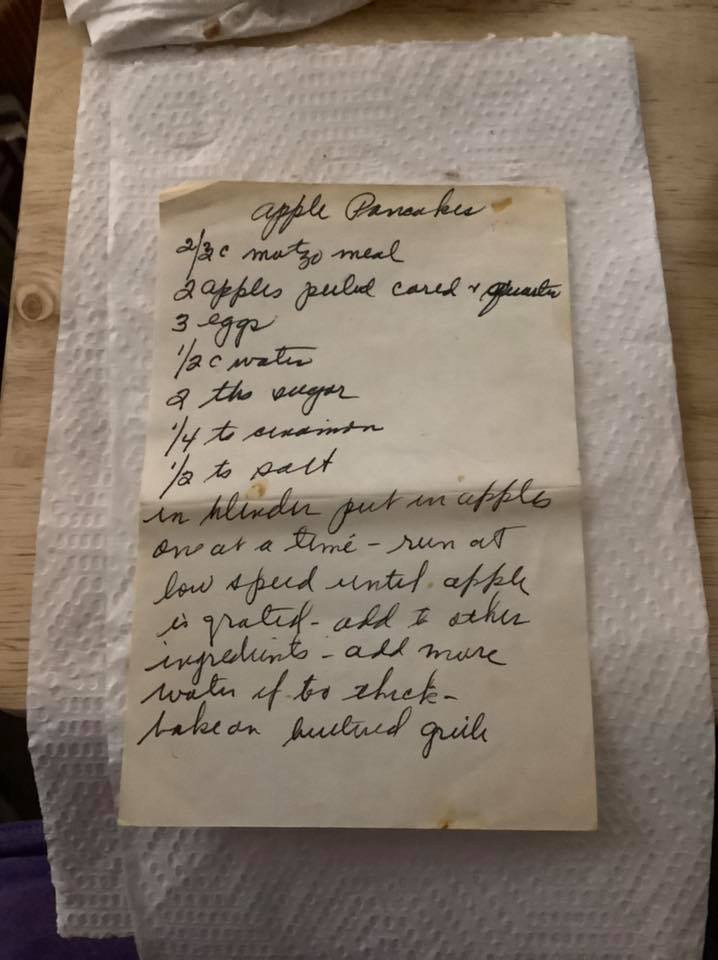 apple Pancakes
2/3 c matzo meal
2 apples peeled cored & quarter
3 eggs
1/2 c water
2 tbs sugar
1/4 ts cinnamon
1/2 ts salt
in blender put in apples
one at a time - run at
low speed until apple
is grated - add to other
ingredients - add more
water if too thick -
bake on buttered grille